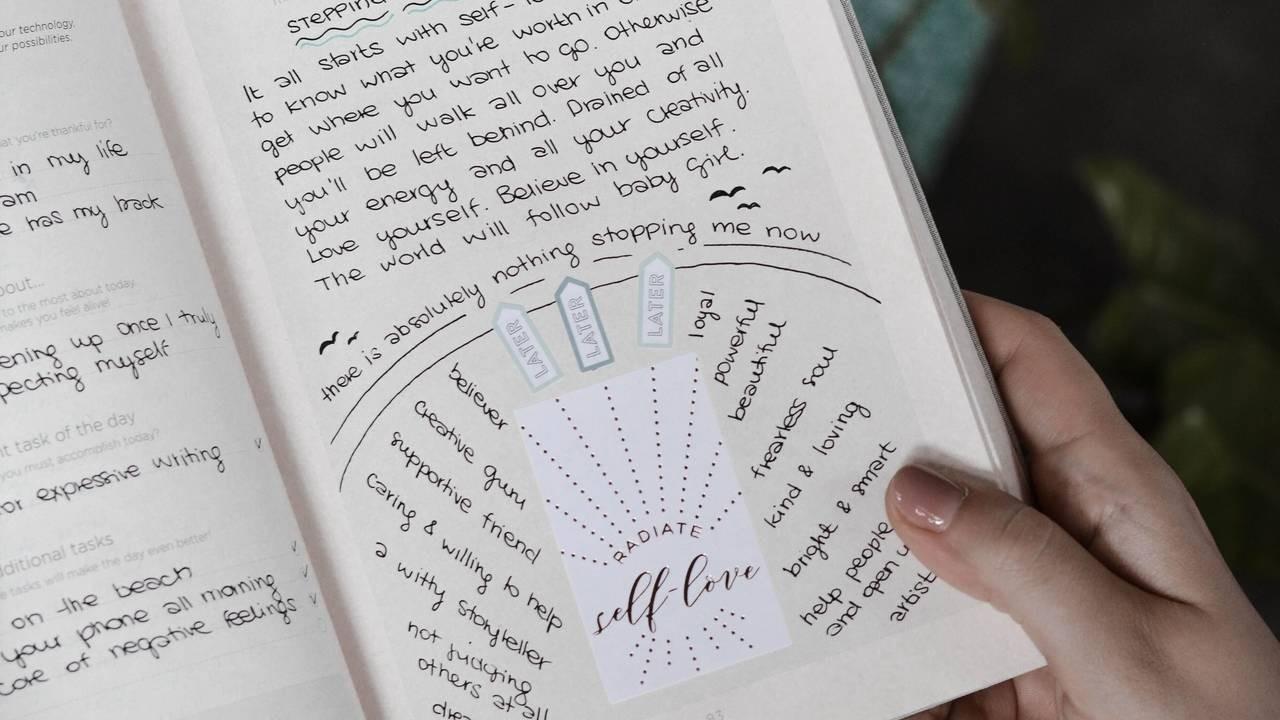 our technology.
ur possibilities.
at you're thankful for?
in my life
am
e has my back
bout...
to the most about today.
makes you feel alive!
ening up once I truly
pecting myself
nt task of the day
you must accomplish today?
or expressive writing
dditional tasks
e tasks will make the day even better!
on the beach
your phone all morning
core of negative feelings
stepping
It all starts with self-
to know what you're worth in
get where you want to go. Otherwise
people will walk all over you and
you'll be left behind. Drained of all
your energy and all your creativity.
Love yourself. Believe in yourself.
The world will follow baby girl.
there is absolutely nothing stopping me now
LATER
LATER
LATER
believer
creative guru
supportive friend
caring & willing to help
a withy storyteller
not judging
others at all
drea
RADIATE
self-love
loyal
powerful
beautiful
frearless soul
kind & loving
bright & smart
help people
and open u
artist
93